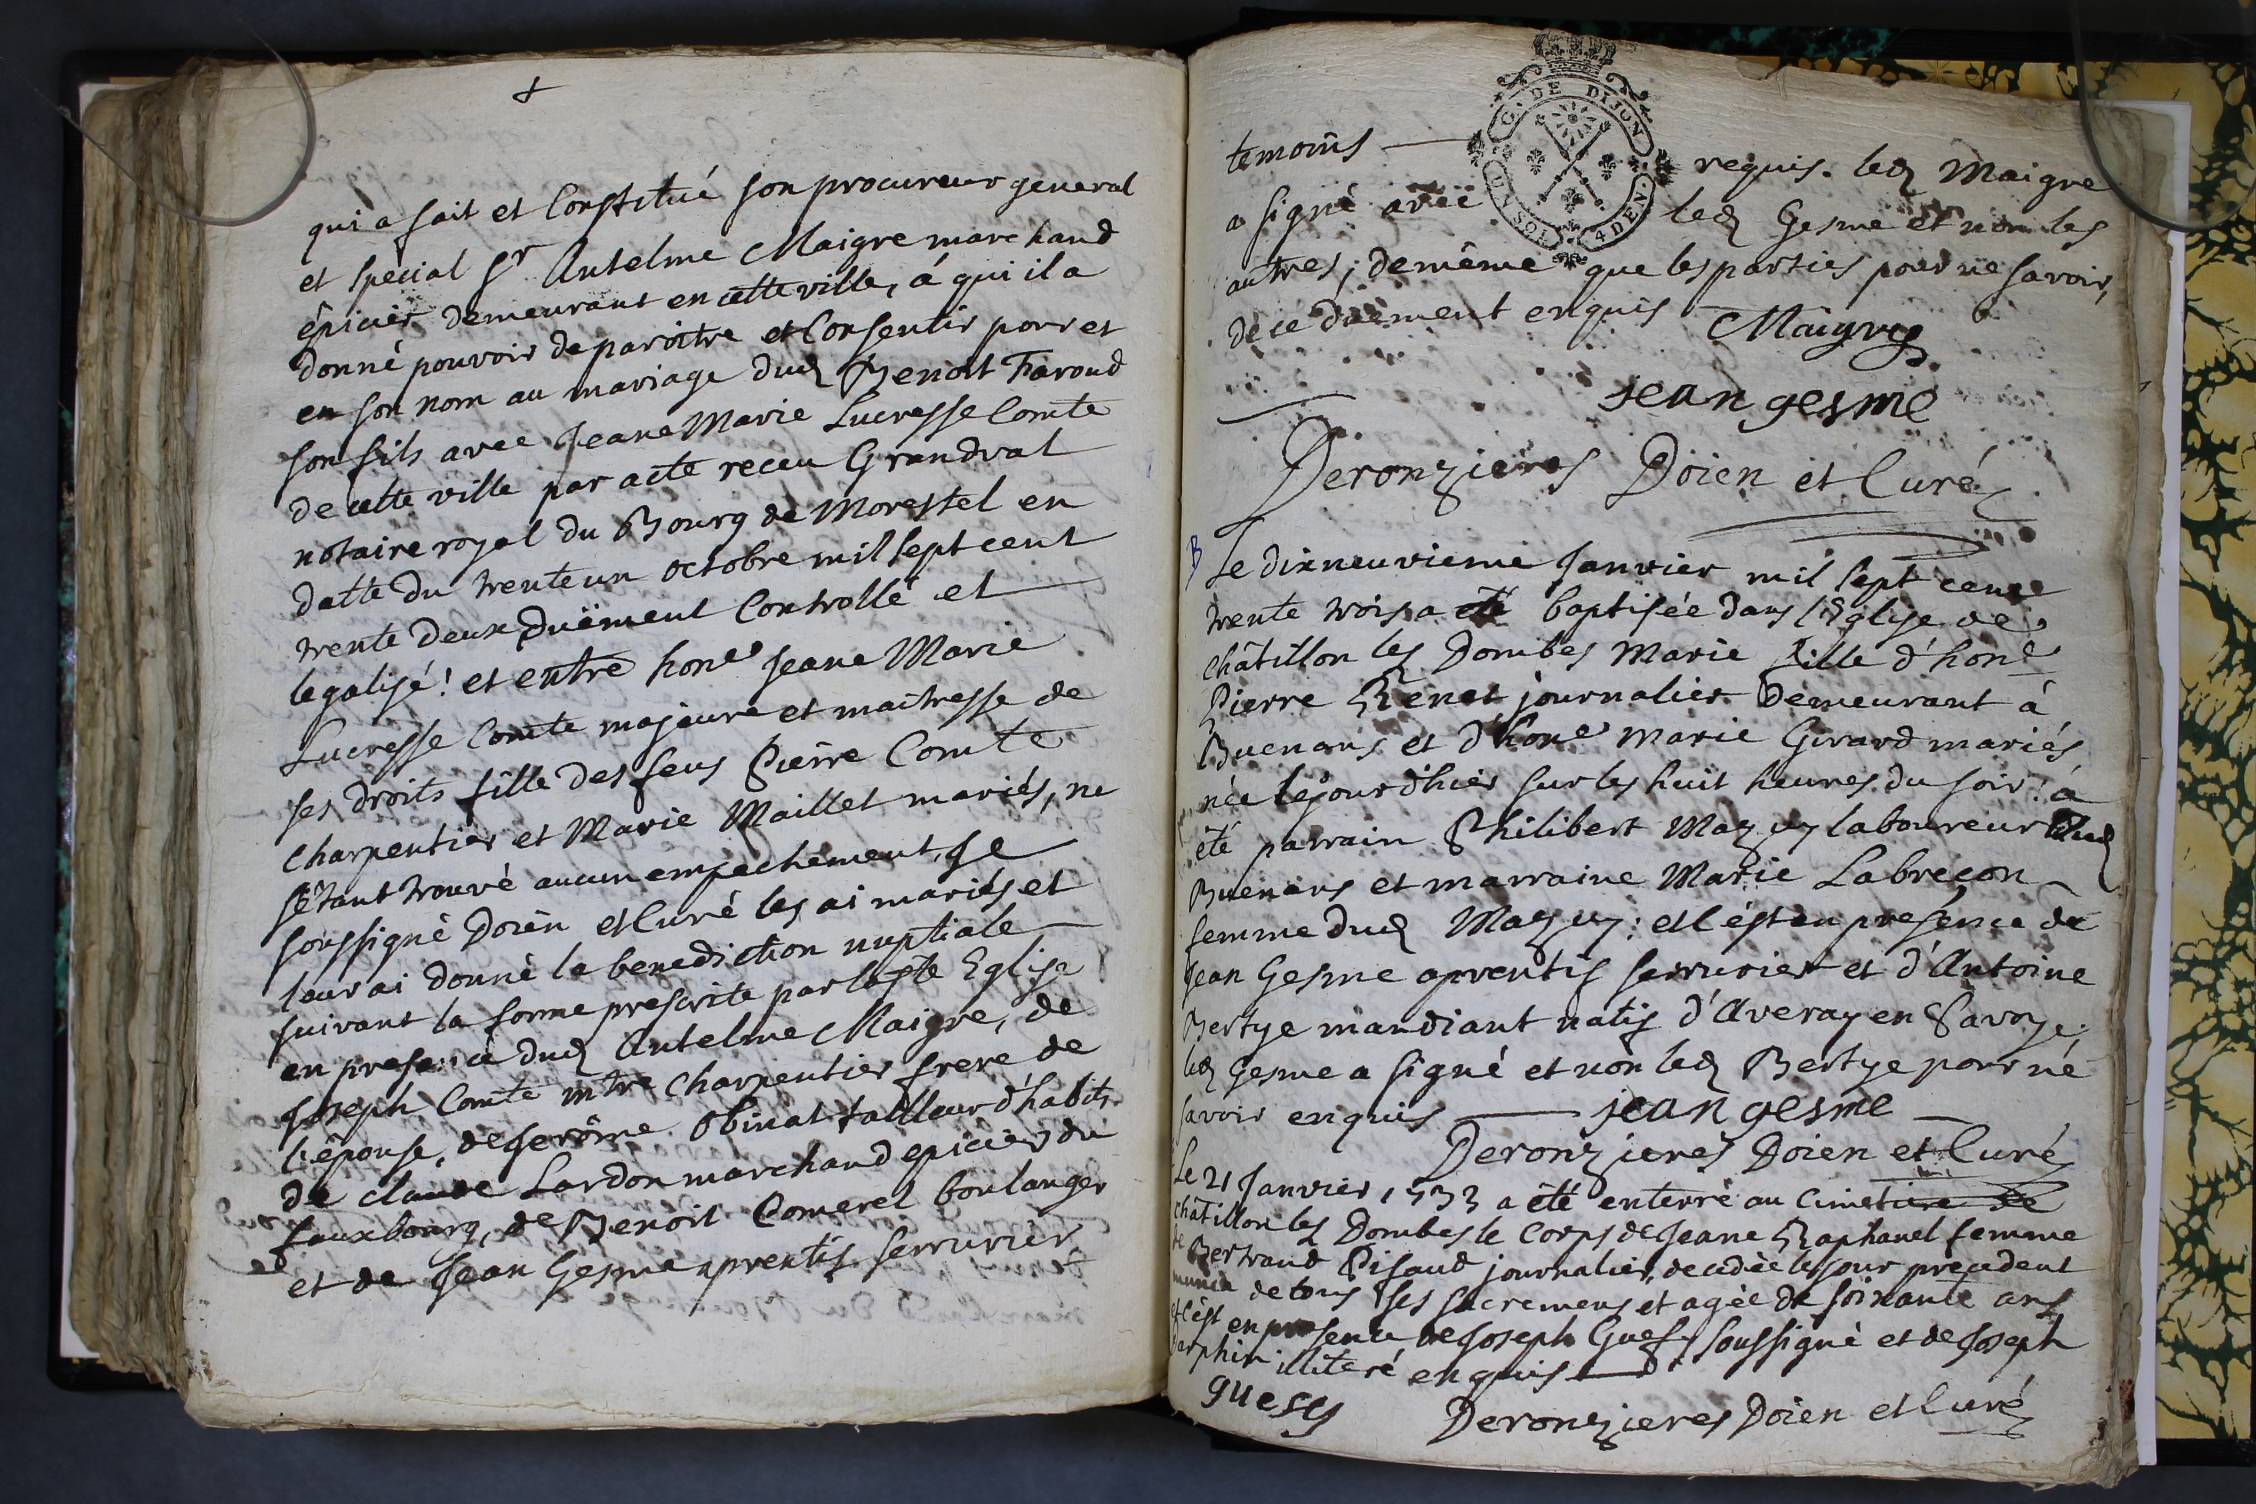 qui a fait et Constitué son procureur general
et special Sr Antelme Maigre marchand
épicier demeurant en cette ville, á qui il a
donné pouvoir de paroitre et Consentir pour et
en son nom au mariage dud Benoit Faroud
son fils avec Jeane Marie Lucresse Comte
de cette ville par acte receu Grandval
notaire royal du Bourg de Morestel en
datte du trente un octobre mil sept cent
trente deux duëment Controllé et
legalisé! et entre hone Jeane Marie
Lucresse Comte majeure et maitresse de
ses droits fille des feus Pierre Comte
Charpentier et Marie Maillet mariés, ne
s'étant trouvé aucun empechement, Je
soussigné Doïen et Curé les ai mariés et
leur ai donné la benediction nuptiale
suivant la forme prescrite par la ste Eglise
en presence dud Antelme Maigre, de
Joseph Comte mtre Charpentier frere de
l'épouse, de Jerôme Obinal tailleur d'habits
de claude Lardon marchand epicier du
fauxbourg, de Benoit Comerel boulanger
et de Jean Gesme aprentis serrurier
temoins requis. led Maigre
G. DE DIJON
UN SOL 4 DEN.
a signé avec led Gesme et non les
autres, de même que les parties pour ne savoir,
de ce düement enquis Maigre
jean gesme
Deronzieres Doien et Curé
B
Le dixneuvieme Janvier mil sept cent
trente trois a été baptisée dans l'Eglise de
châtillon les Dombes Marie fille d'hone
Pierre Renet journalier Demeurant á
Buenans et d'hone Marie Girard mariés
née le jour d'hier sur les huit heures du soir: á
été parrain Philibert Mazuy laboureur dud
Buenans et marraine Marie Labreçon
femme dud Mazuy: et c'ést en presence de
Jean Gesme aprentis serrurier et d'Antoine
Bertye mandiant natif d'Averay en Savoye.
led Gesme a signé et non led Bertye pour ne
savoir enquis jean gesme
Deronzieres Doien et Curé
Le 21 Janvier 1733 a été enterré au cimetiere de
châtillon les Dombes le Corps de Jeane Raphanel femme
de Bertrand Pisaud journalier, decedée le jour precedent
munie de tous ses sacremens et agée de soixante ans
et c'ést en presence de Joseph Guesy soussigné et de Joseph
darphin illiteré enquis
guesy Deronzieres Doien et Curé